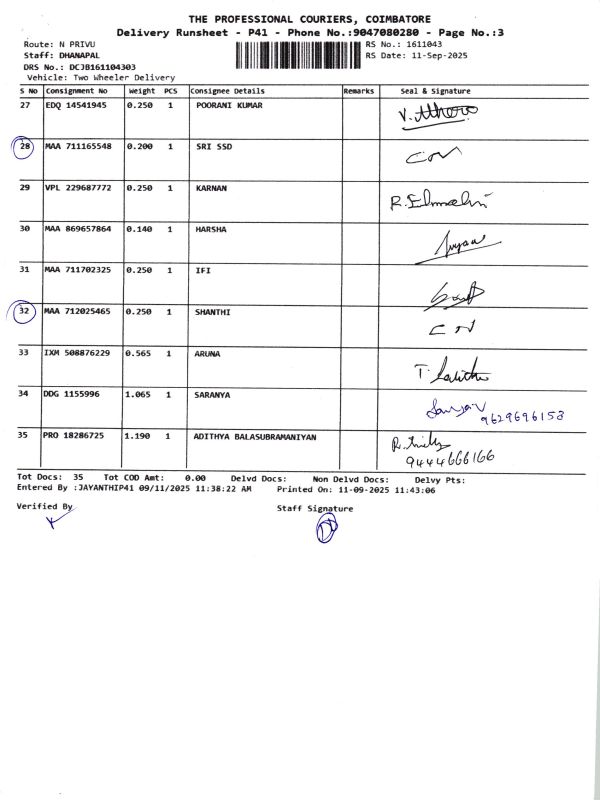 THE PROFESSIONAL COURIERS, COIMBATORE
Delivery Runsheet - P41 - Phone No.:9047080280 - Page No.:3
Route: N PRIVU RS No.: 1611043
Staff: DHANAPAL RS Date: 11-Sep-2025
DRS No.: DCJB161104303
Vehicle: Two Wheeler Delivery
S No Consignment No Weight PCS Consignee Details Remarks Seal & Signature
27 EDQ 14541945 0.250 1 POORANI KUMAR
28 MAA 711165548 0.200 1 SRI SSD
29 VPL 229687772 0.250 1 KARNAN
30 MAA 869657864 0.140 1 HARSHA
31 MAA 711702325 0.250 1 IFI
32 MAA 712025465 0.250 1 SHANTHI
33 IXM 508876229 0.565 1 ARUNA
34 DDG 1155996 1.065 1 SARANYA
9629696158
35 PRO 18286725 1.190 1 ADITHYA BALASUBRAMANIYAN
9444666166
Tot Docs: 35 Tot COD Amt: 0.00 Delvd Docs: Non Delvd Docs: Delvy Pts:
Entered By :JAYANTHIP41 09/11/2025 11:38:22 AM Printed On: 11-09-2025 11:43:06
Verified By Staff Signature